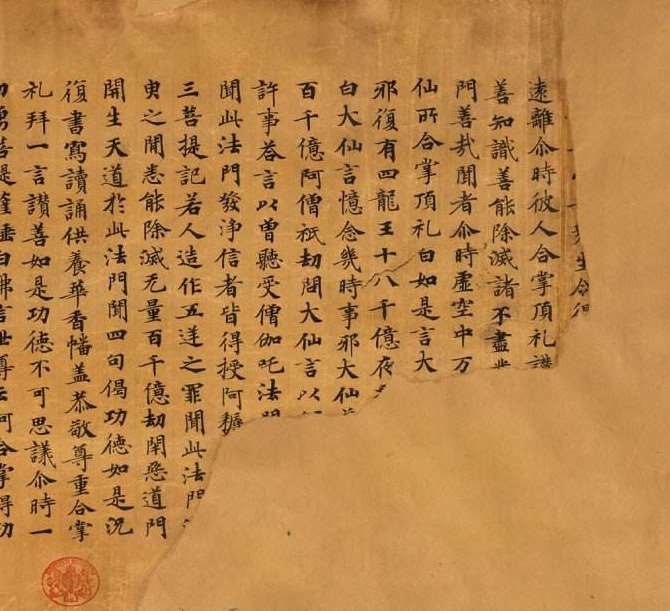 遠離尒時彼人合掌頂礼
善知識善能除滅諸不
門善哉聞者尒時虛空中万
仙所合掌頂礼白如是言大
邪復有四龍王十八千億夜
白大仙言憶念幾時事邪大仙
百千億阿僧祇劫問大仙言以
許事荅言以曽聽受僧伽吒法門
聞此法門發浄信者皆得授阿耨
三菩提記若人造作五逆之罪聞此法門
臾之閒悉能除滅无量百千億劫閇惡道門
開生天道於此法門聞四句偈功德如是況
復書寫讀誦供養華香幡盖恭敬尊重合掌
礼拜一言讃善如是功德不可思議尒時一
切勇菩提薩埵白佛言世尊云何合掌得功